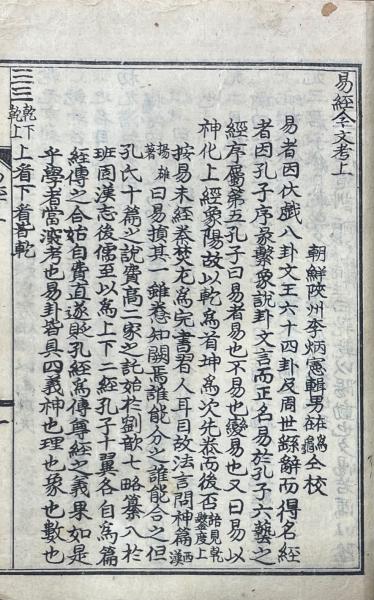 易經今文考上
朝鮮陜州李炳憲輯男在仝校
易者因伏戱八卦文王六十四卦及周世繇辭而得名經
者因孔子序彖繫象說卦文言而正名易於孔子六藝之
經序屬第五孔子曰易者易也不易也變易也又曰易以
神化上經象陽故以乾爲首坤爲次先泰而後否語見乾鑿度上
按易未經秦焚尤爲完書習人耳目故法言問神篇西漢
揚雄著曰易損其一雖憃知闕焉誰能分之誰能合之但
孔氏十篇之說費高二家之託始於劉歆七略纂入於
班固漢志後儒至以爲上下二經孔子十翼各自爲篇
經傳之合始自費直遂貶孔經爲傳尊經之義果如是
乎學者當深考也易卦皆具四義神也理也象也數也
☰☰乾下乾上上看下看皆乾